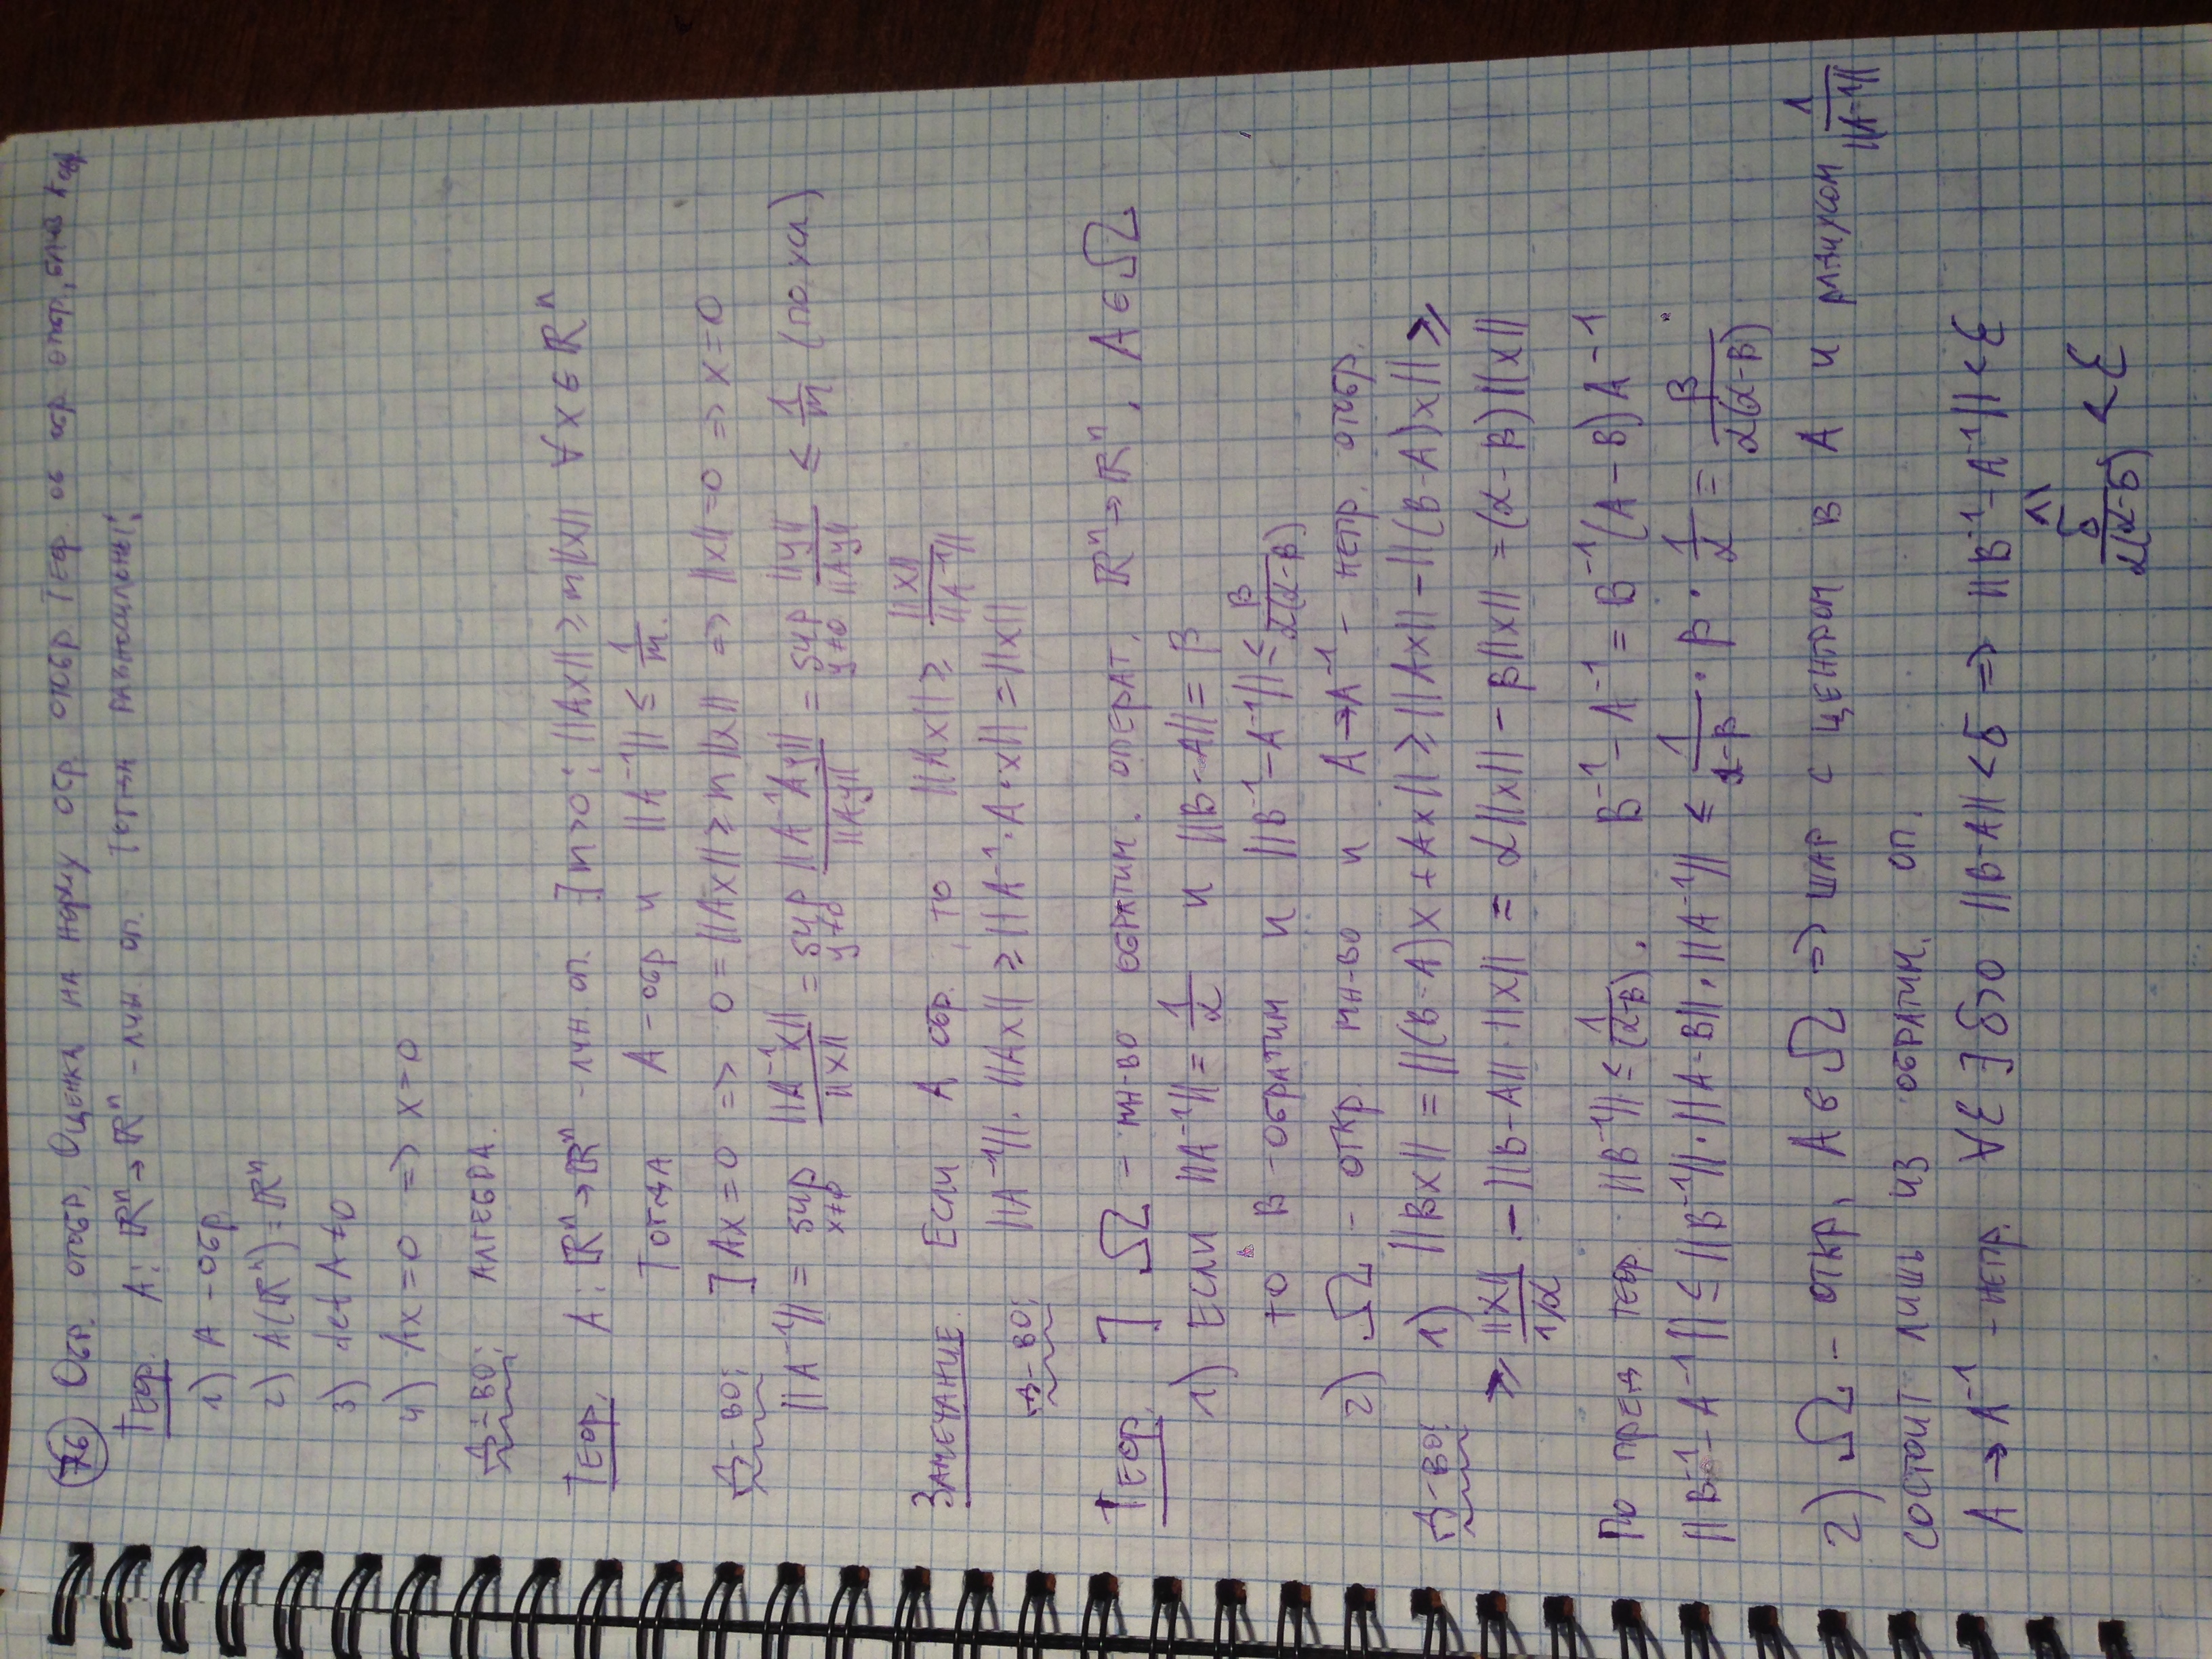 76 Обр. отобр. Оценка на норму обр. отобр. Теор. об обр. отобр., близ к обр.
Теор. A: ℝⁿ → ℝⁿ - лин. оп. Тогда равносильны:
1) A - обр.
2) A(ℝⁿ) = ℝⁿ
3) det A ≠ 0
4) Ax = 0 => x = 0
Д-во: Алгебра.
Теор. A: ℝⁿ → ℝⁿ - лин. оп. ∃ m>0: ||Ax|| ≥ m||x|| ∀x ∈ ℝⁿ
Тогда A - обр и ||A⁻¹|| ≤ 1/m.
Д-во: ] Ax = 0 => 0 = ||Ax|| ≥ m||x|| => ||x|| = 0 => x = 0
||A⁻¹|| = sup_{x≠0} ||A⁻¹x||/||x|| = sup_{y≠0} ||A⁻¹Ay||/||Ay|| = sup_{y≠0} ||y||/||Ay|| ≤ 1/m (по усл)
Замечание. Если A обр., то ||Ax|| ≥ ||x||/||A⁻¹||
Д-во: ||A⁻¹||·||Ax|| ≥ ||A⁻¹·A·x|| = ||x||
Теор. ] Ω - мн-во обратим. операт. ℝⁿ → ℝⁿ, A ∈ Ω
1) Если ||A⁻¹|| = 1/α и ||B-A|| = β
то B - обратим и ||B⁻¹-A⁻¹|| ≤ β/α(α-β)
2) Ω - откр. мн-во и A → A⁻¹ - непр. отобр.
Д-во: 1) ||Bx|| = ||(B-A)x + Ax|| ≥ ||Ax|| - ||(B-A)x|| ≥
≥ ||x||/1/α - ||B-A||·||x|| = α||x|| - β||x|| = (α-β)||x||
По пред теор. ||B⁻¹|| ≤ 1/(α-β). B⁻¹-A⁻¹ = B⁻¹(A-B)A⁻¹
||B⁻¹-A⁻¹|| ≤ ||B⁻¹||·||A-B||·||A⁻¹|| ≤ 1/α-β · β · 1/α = β/α(α-β)
2) Ω - откр, A ∈ Ω => шар с центром в A и радиусом 1/||A⁻¹||
состоит лишь из обратим. оп.
A → A⁻¹ - непр. ∀ε ∃ δ>0 ||B-A|| < δ => ||B⁻¹-A⁻¹|| < ε
δ/α(α-δ) < ε